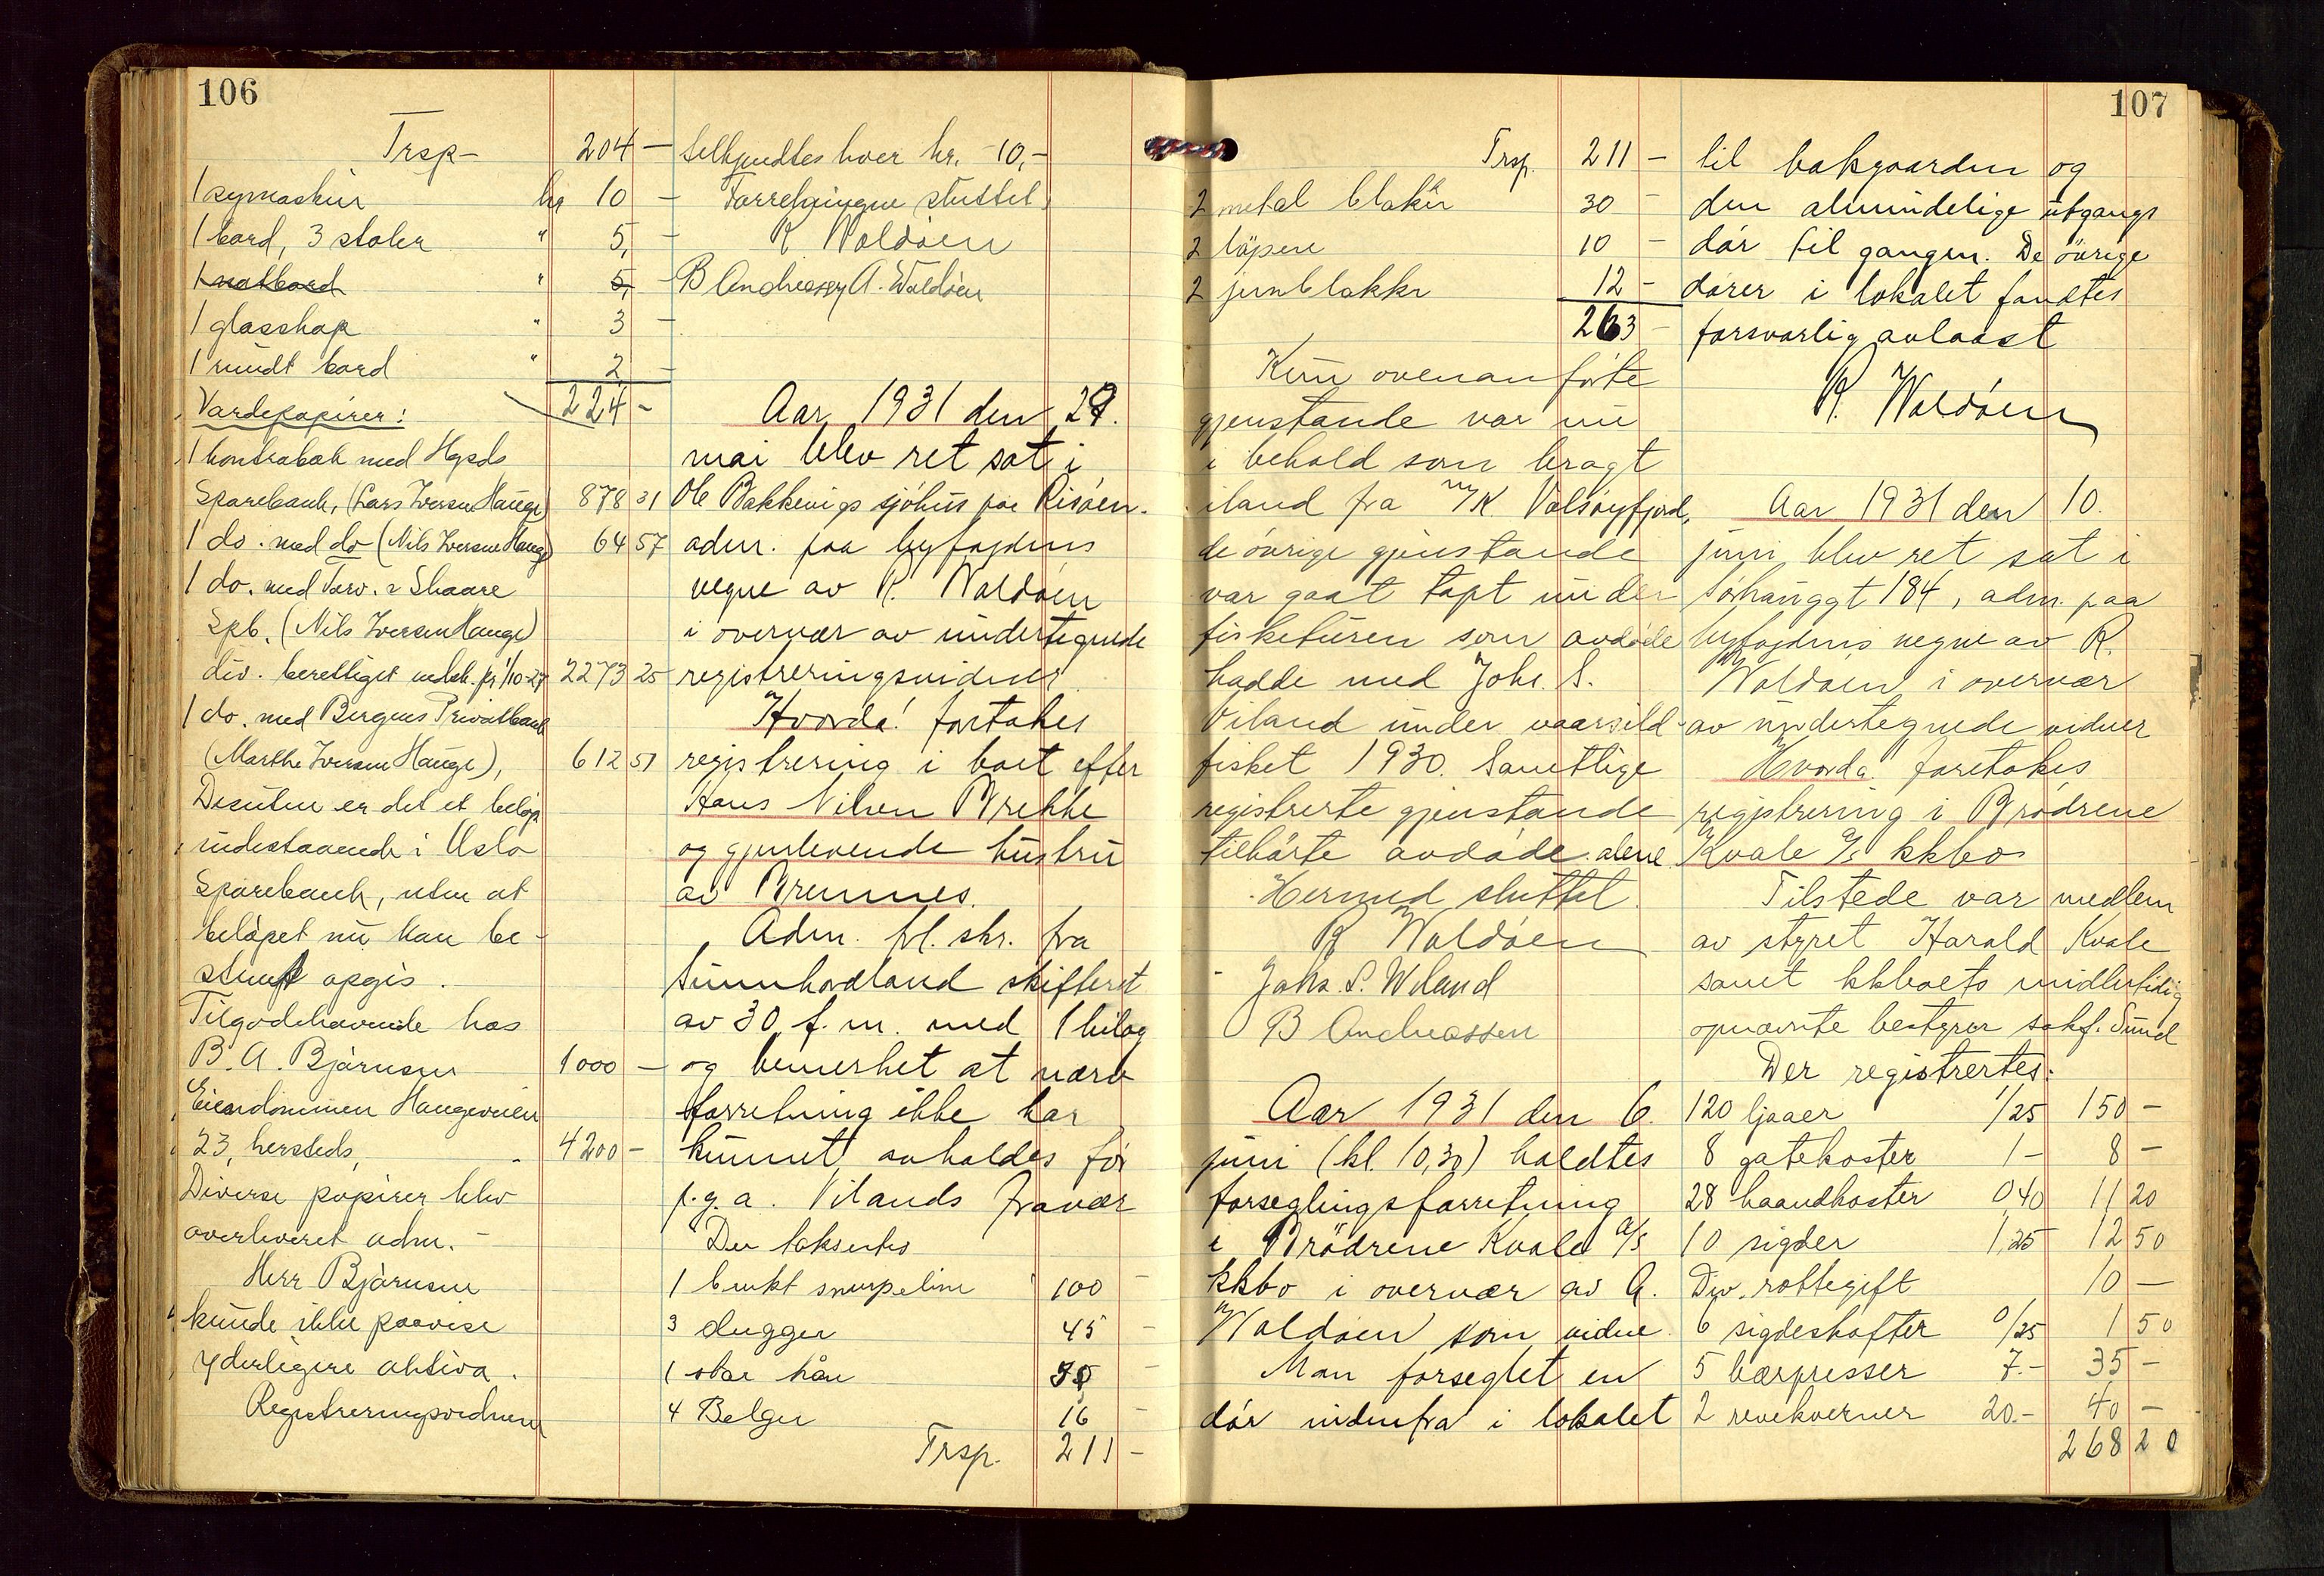 106
Trsp- 204 -
1 symaskin kr 10 -
1 bord, 3 stoler " 5,-
1 matbord " 5,-
1 glasskap " 3 -
1 rundt bord " 2 -
Værdipapirer: 224 -
1 kontrabok med Hgsds
Sparebank, (Lars Iversen Hauge) 878 31
1 do. med do (Nils Iversen Hauge) 64 57
1 do. med Torv. & Skaare
Spb. (Nils Iversen Hauge)
div. berettiget vedk. pr 1/10-27 2273 25
1 do. med Bergens Privatbank
(Marthe Iversen Hauge), 612 51
Desuten er det et beløp
indestaaende i Oslo
Sparebank, uten at
beløpet nu kan be-
stemt opgis.
Tilgodehavende hos
B. A. Bjørnsen 1000 -
Eiendommen Haugeveien
23, hersteds, 4200 -
Diverse papirer blev
overleveret adm. -
Herr Bjørnsen
kunde ikke paavise
yderligere aktiva.
Registreringsvidnene
tilkjendtes hver kr. 10,-
Forretningen sluttet.
R Waldøen
B Andreassen A. Waldøen
Aar 1931 den 29.
mai blev ret sat i
Ole Bakkevigs sjøhus paa Risøen.
adm. paa byfogdens
vegne av R. Waldøen
i overvær av undertegnede
registreringsvidner
Hvorda! foretokes
registrering i boet efter
Hans Nilsen Brekke
og gjenlevende hustru
av Bremnes.
Adm. frl. skr. fra
Sunnhordland skifteret
av 30 f. m. med 1 bilag
og bemerket at nærv
forretning ikke har
kunnet avholdes før
p.g.a. Vilands fravær
Der taksertes
1 brukt snurpeline 100 -
3 dugger 45 -
1 stor håv 50 -
4 Belger 16 -
Trsp. 211 -
107
Trsp. 211 -
2 metal blokker 30 -
2 løpere 10 -
2 jernblokker 12 -
263 -
Kun ovenanførte
gjenstande var nu
i behold som bragt
iland fra M/K Valsøyfjord,
de øvrige gjenstande
var gaat tapt under
fisketuren som avdøde
hadde med Johs. S.
Viland under vaarsild-
fisket 1930. Samtlige
registrerte gjenstande
tilhørte avdøde alene.
Hermed sluttet.
R Waldøen
Johs. S. Wiland
B Andreassen
Aar 1931 den 6.
juni (kl. 10,30) holdtes
forseglingsforretning
i Brødrene Kvale A/S
kkbo i overvær av A.
Waldøen som vidne.
Man forseglet en
dør indenfra i lokalet
til bakgaarden og
den almindelige utgangs
dør til gangen. De øvrige
dører i lokalet fandtes
forsvarlig avlaast
R. Waldøen
Aar 1931 den 10.
juni blev ret sat i
Søhauggt 184, adm. paa
byfogdens vegne av R.
Waldøen i overvær
av undertegnede vidner
Hvorda! foretokes
registrering i Brødrene
Kvale A/S kkbo
Tilstede var medlem
av styret Harald Kvale
samt kkboets midlertidig
opnævnte bestyrer sakf. Sund
Der registrertes:
120 ljaaer 1/25 150 -
8 gatekoster 1 - 8 -
28 haandkoster 0,40 11 20
10 sigder 1,25 12 50
Div. rottegift 10 -
6 sigdeskafter 0/25 1 50
5 bærpresser 7.- 35 -
2 revekverner 20.- 40 -
268 20